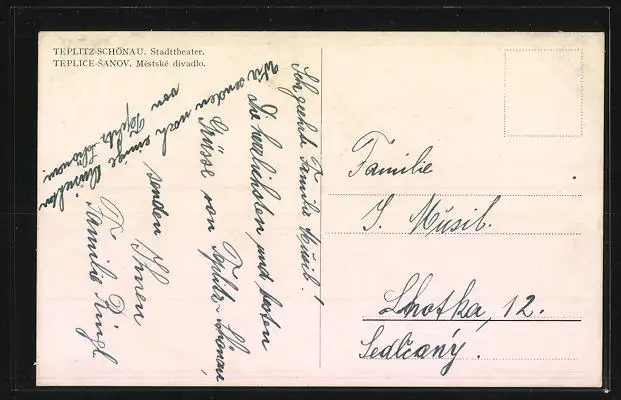 TEPLITZ-SCHÖNAU. Stadttheater.
TEPLICE-ŠANOV. Městské divadlo.
Sehr geehrte Familie Músil!
Die herzlichsten und besten
Grüsse von Teplitz-Schönau,
senden Ihnen
Familie Ringl.
Wir senden noch einige Ansichten
von Teplitz-Schönau
Familie
J. Músil.
Lhotka, 12.
Sedlčaný.